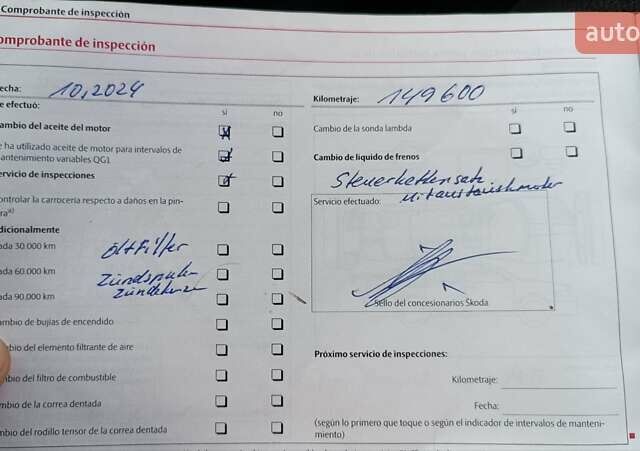 Comprobante de inspección
auto
omprobante de inspección
echa: 10,2024
Kilometraje: 149600
e efectuó:
sí no
sí no
ambio del aceite del motor
Cambio de la sonda lambda
e ha utilizado aceite de motor para intervalos de
antenimiento variables QG1
Cambio de líquido de frenos
ervicio de inspecciones
Steuerkettensatz
mit austauschmotor
ontrolar la carrocería respecto a daños en la pin-
ra
Servicio efectuado:
dicionalmente
ada 30.000 km
Öl+Filter
ada 60.000 km
Zündspulen
Zündkerze
ada 90.000 km
Sello del concesionarios Škoda
ambio de bujías de encendido
bio del elemento filtrante de aire
Próximo servicio de inspecciones:
bio del filtro de combustible
Kilometraje:
mbio de la correa dentada
Fecha:
mbio del rodillo tensor de la correa dentada
(según lo primero que toque o según el indicador de intervalos de manteni-
miento)